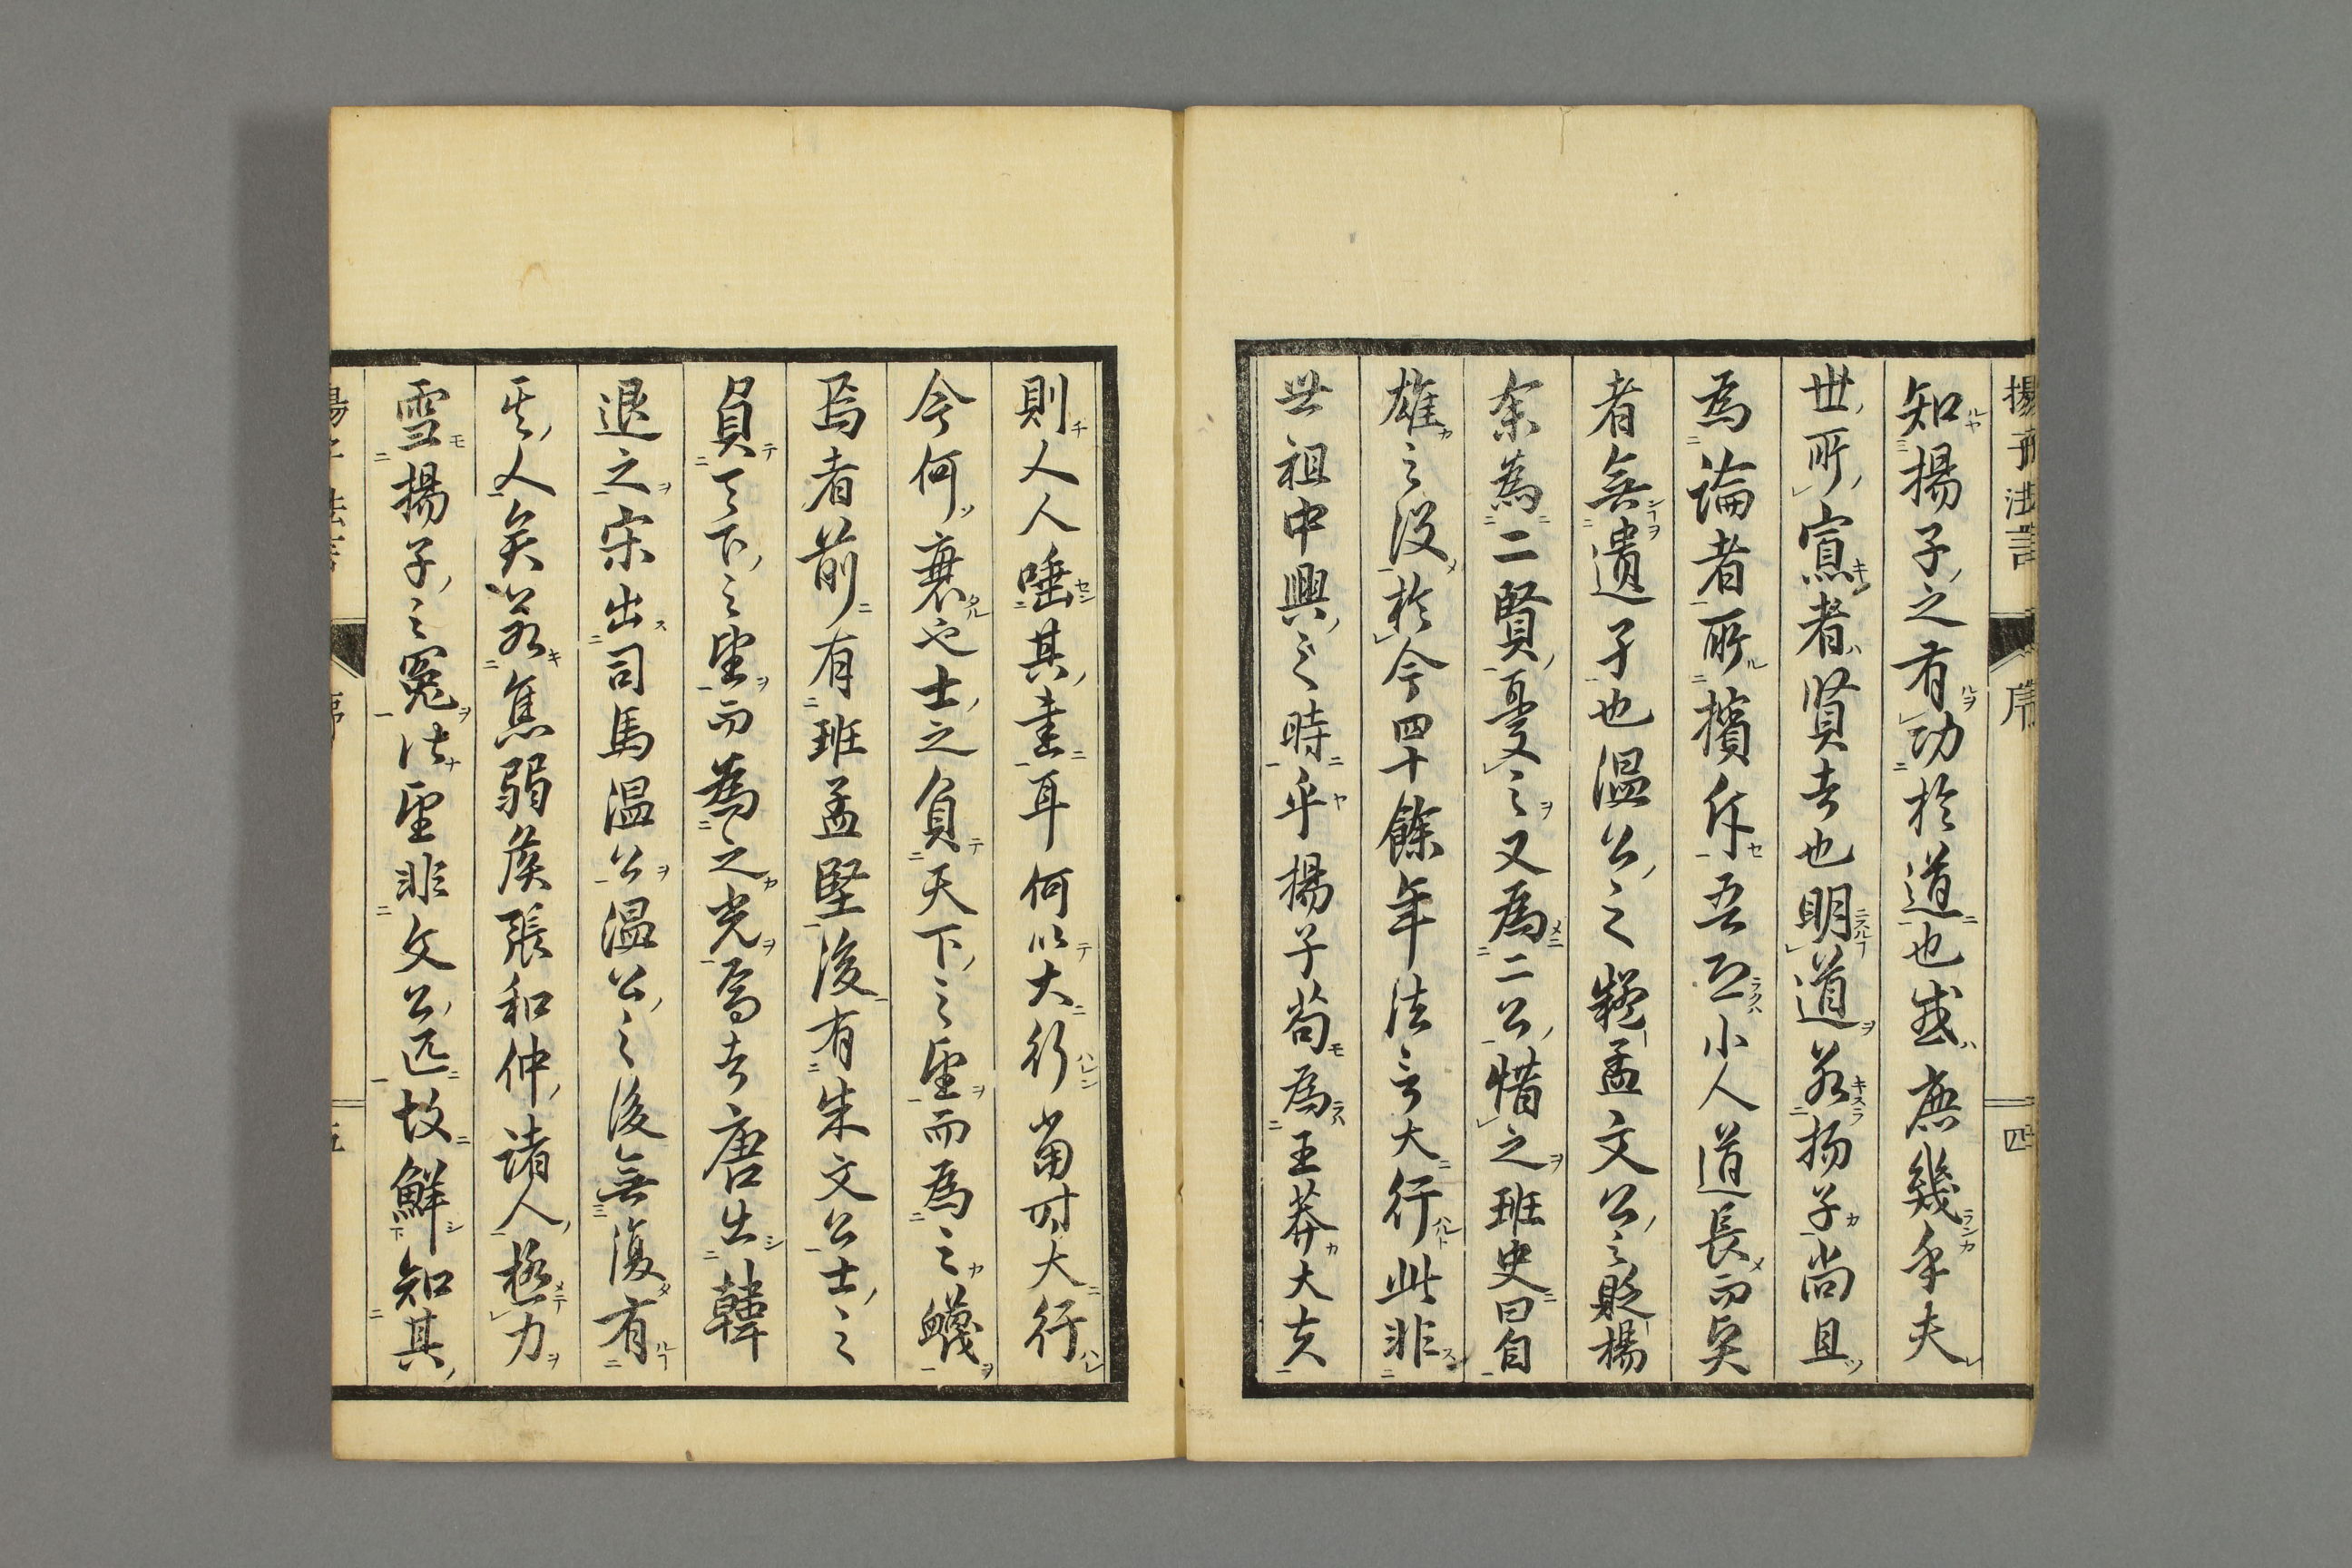 揚子法言 序 四
知揚子之有功於道也或庶幾乎夫
世所寘者賢者也明道若揚子尚且
為論者所擯斥吾恐小人道長而吴
者無遺子也温公之疑孟文公之貶揚
余為二賢憂之又為二公惜之班史曰自
雄之没於今四十餘年法言大行此非
世祖中興之時乎揚子苟為王莽大夫
則人人唾其書耳何以大行當時大行
今何衰也士之負天下之聖而為之
焉者前有班孟堅後有朱文公士之
負天下之望而為之光焉者唐出韓
退之宋出司馬温公温公之後無復有
其人矣若焦弱侯張和仲諸人極力
雪揚子之冤法聖非文公匹故鮮知其